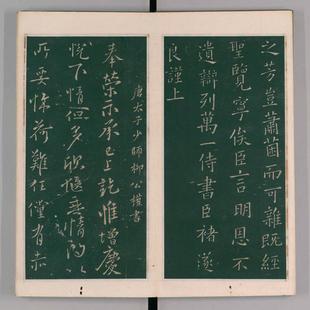 之芳豈蕭茵而可雜既經
聖覽寧俟臣言明恩不
遺辯列萬一侍書臣褚遂
良謹上
唐太子少師柳公權書
奉榮示承已上訖惟增慶
悅下情但多欣愜垂情問以
所要悚荷難任謹有赤